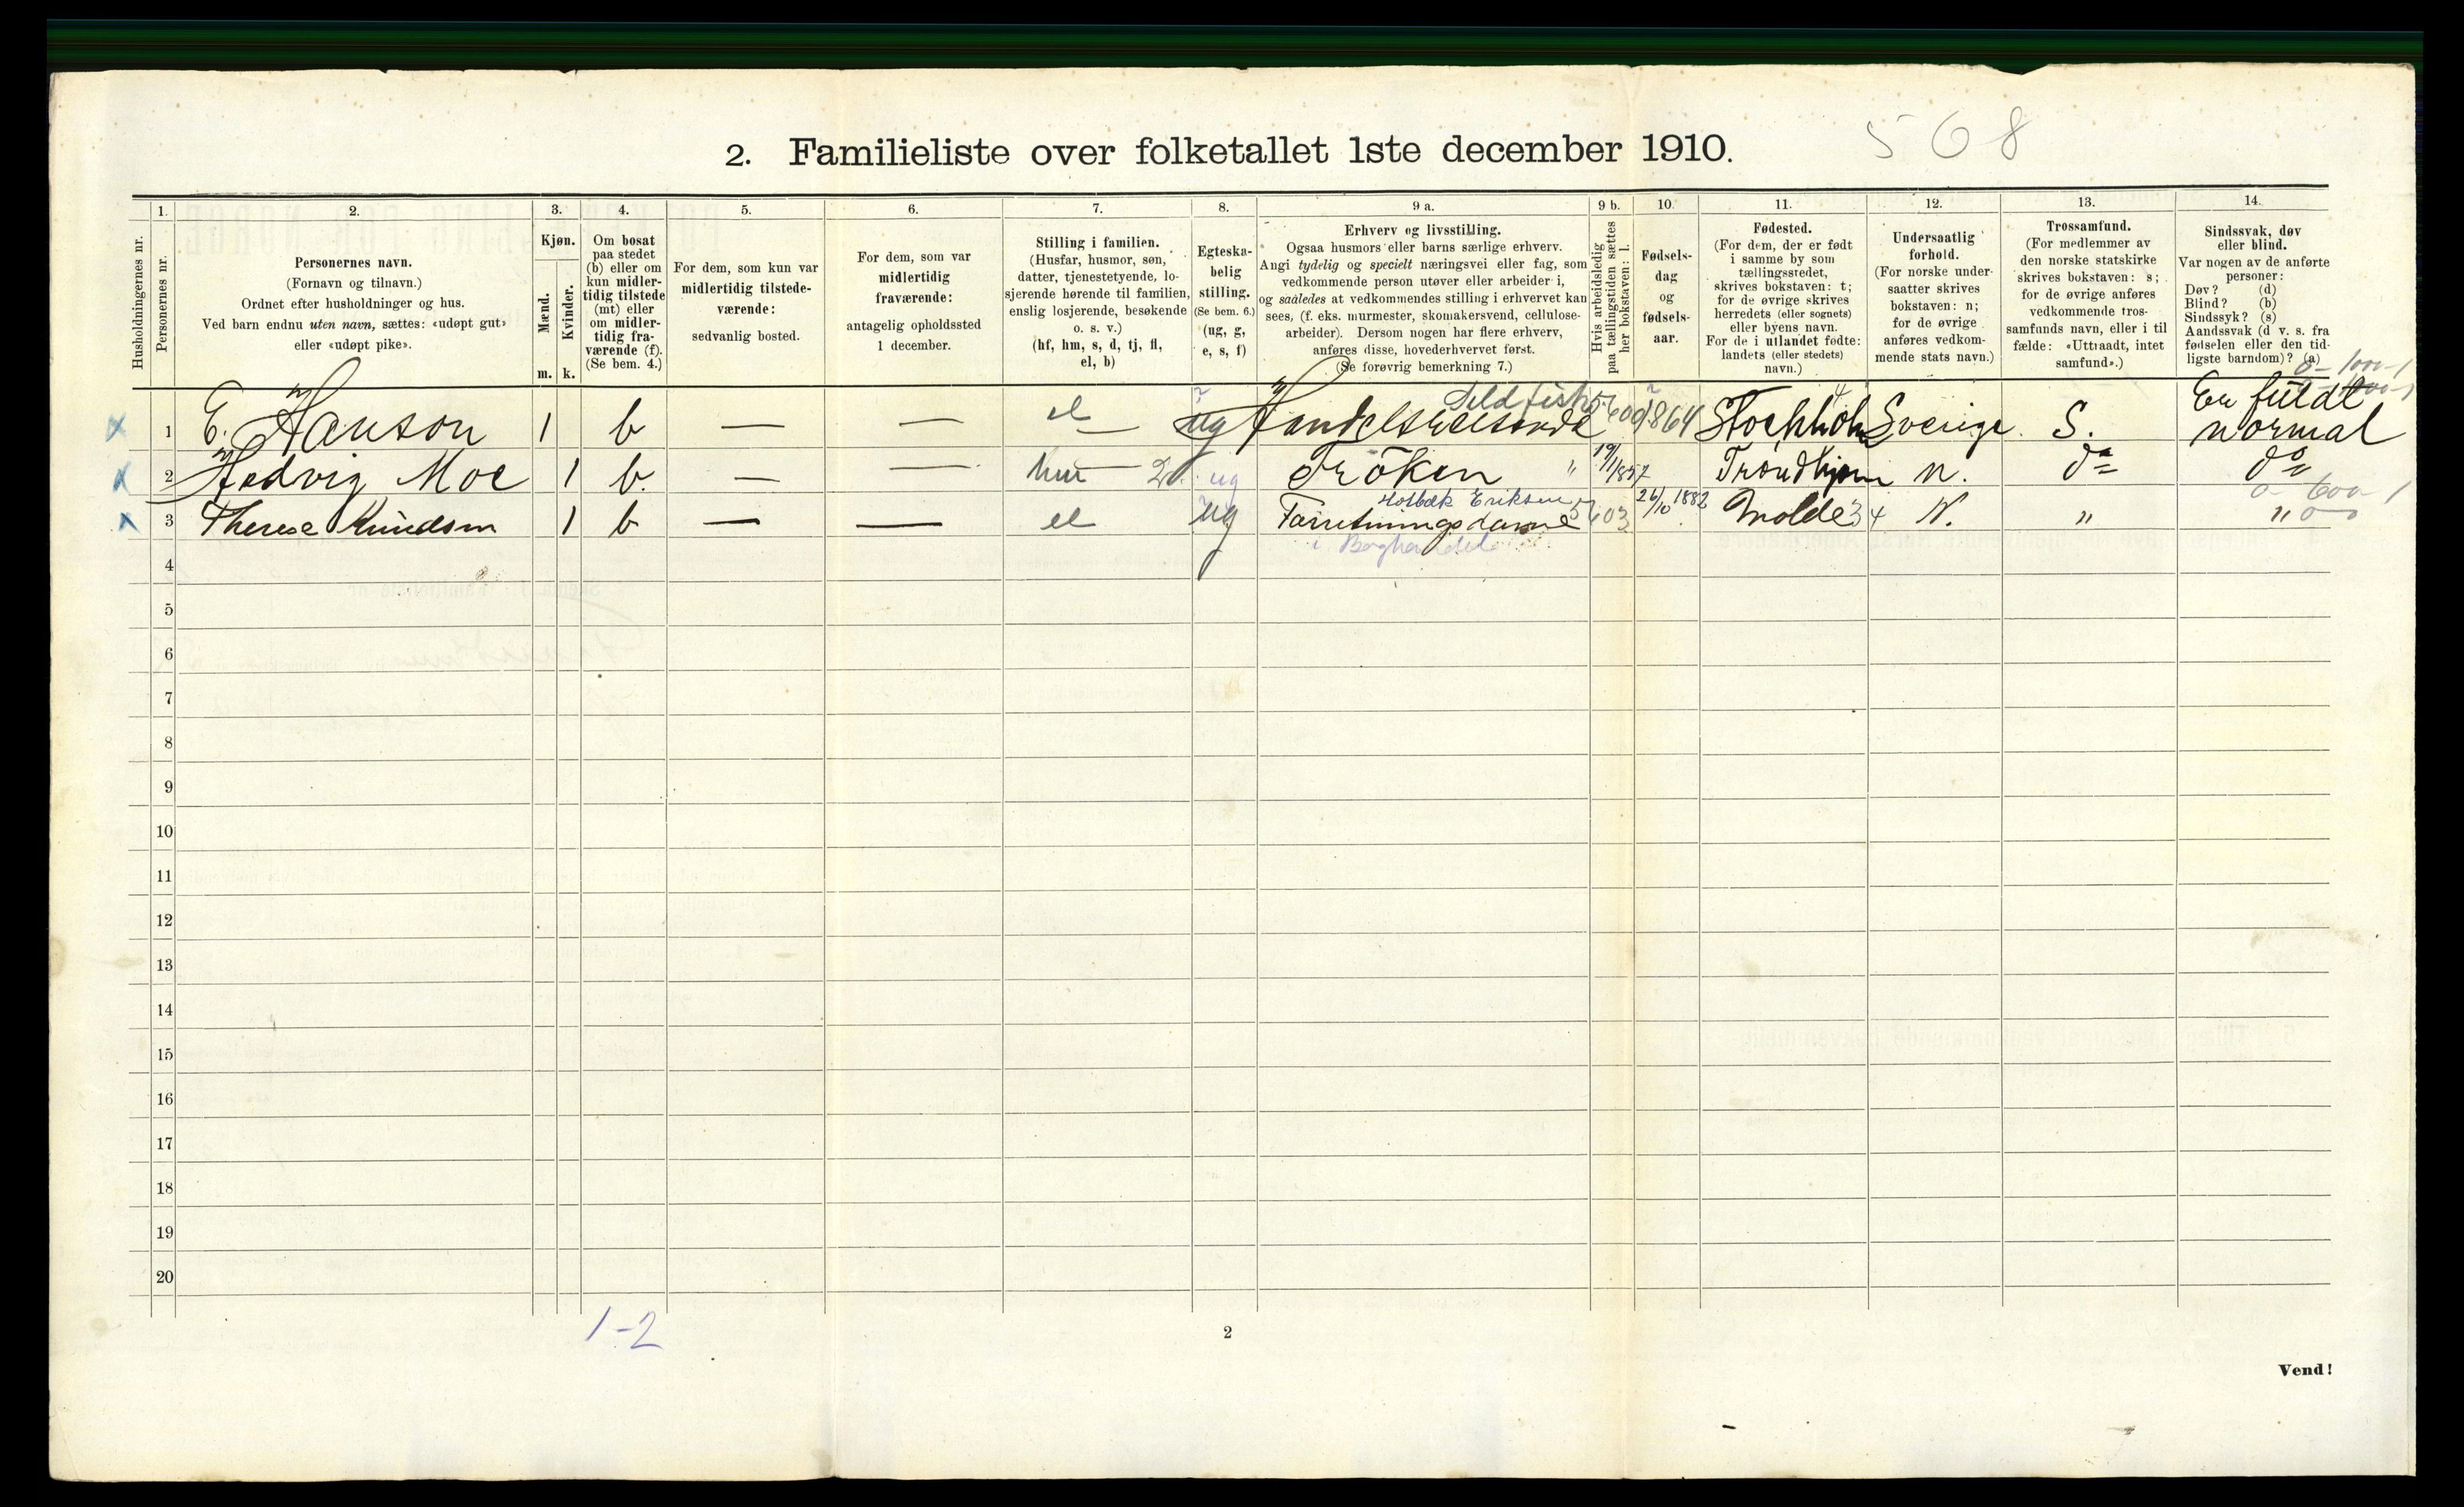 2. Familieliste over folketallet 1ste december 1910. 568
1. 2. 3. 4. 5. 6. 7. 8. 9 a. 9 b. 10. 11. 12. 13. 14.
Husholdningernes nr.
Personernes nr.
Personernes navn.
(Fornavn og tilnavn.)
Ordnet efter husholdninger og hus.
Ved barn endnu uten navn, sættes: «udøpt gut»
eller «udøpt pike».
Kjøn.
Mænd.
Kvinder.
m. k.
Om bosat
paa stedet
(b) eller om
kun midler-
tidig tilstede
(mt) eller
om midler-
tidig fra-
værende (f).
(Se bem. 4.)
For dem, som kun var
midlertidig tilstede-
værende:
sedvanlig bosted.
For dem, som var
midlertidig
fraværende:
antagelig opholdssted
1 december.
Stilling i familien.
(Husfar, husmor, søn,
datter, tjenestetyende, lo-
sjerende hørende til familien,
enslig losjerende, besøkende
o. s. v.)
(hf, hm, s, d, tj, fl,
el, b)
Egteska-
belig
stilling.
(Se bem. 6.)
(ug, g,
e, s, f)
Erhverv og livsstilling.
Ogsaa husmors eller barns særlige erhverv.
Angi tydelig og specielt næringsvei eller fag, som
vedkommende person utøver eller arbeider i,
og saaledes at vedkommendes stilling i erhvervet kan
sees, (f. eks. murmester, skomakersvend, cellulose-
arbeider). Dersom nogen har flere erhverv,
anføres disse, hovederhvervet først.
(Se forøvrig bemerkning 7.)
Hvis arbeidsledig
paa tællingstiden sættes
her bokstaven: l.
Fødsels-
dag
og
fødsels-
aar.
Fødested.
(For dem, der er født
i samme by som
tællingsstedet,
skrives bokstaven: t;
for de øvrige skrives
herredets (eller sognets)
eller byens navn.
For de i utlandet fødte:
landets (eller stedets)
navn.)
Undersaatlig
forhold.
(For norske under-
saatter skrives
bokstaven: n;
for de øvrige
anføres vedkom-
mende stats navn.)
Trossamfund.
(For medlemmer av
den norske statskirke
skrives bokstaven: s;
for de øvrige anføres
vedkommende tros-
samfunds navn, eller i til
fælde: «Uttraadt, intet
samfund».)
Sindssvak, døv
eller blind.
Var nogen av de anførte
personer:
Døv? (d)
Blind? (b)
Sindssyk? (s)
Aandssvak (d v. s. fra
fødselen eller den tid-
ligste barndom)? (a)
Sild fisk Er fuldt
1 E. Hanson 1 b — — el ug Handelsreisende 1864 Stockholm Sverige S. normal
2 Hedvig Moe 1 b. — — hm ug Fröken " 19/1 1857 Trondhjem n. do do
Holbæk Eriksen
3 Therese Knudsen 1 b — — el ug Forretningsdame 26/10 1882 Molde 34 N. " "
i Boghandel
4
5
6
7
8
9
10
11
12
13
14
15
16
17
18
19
20
1-2
2
Vend!